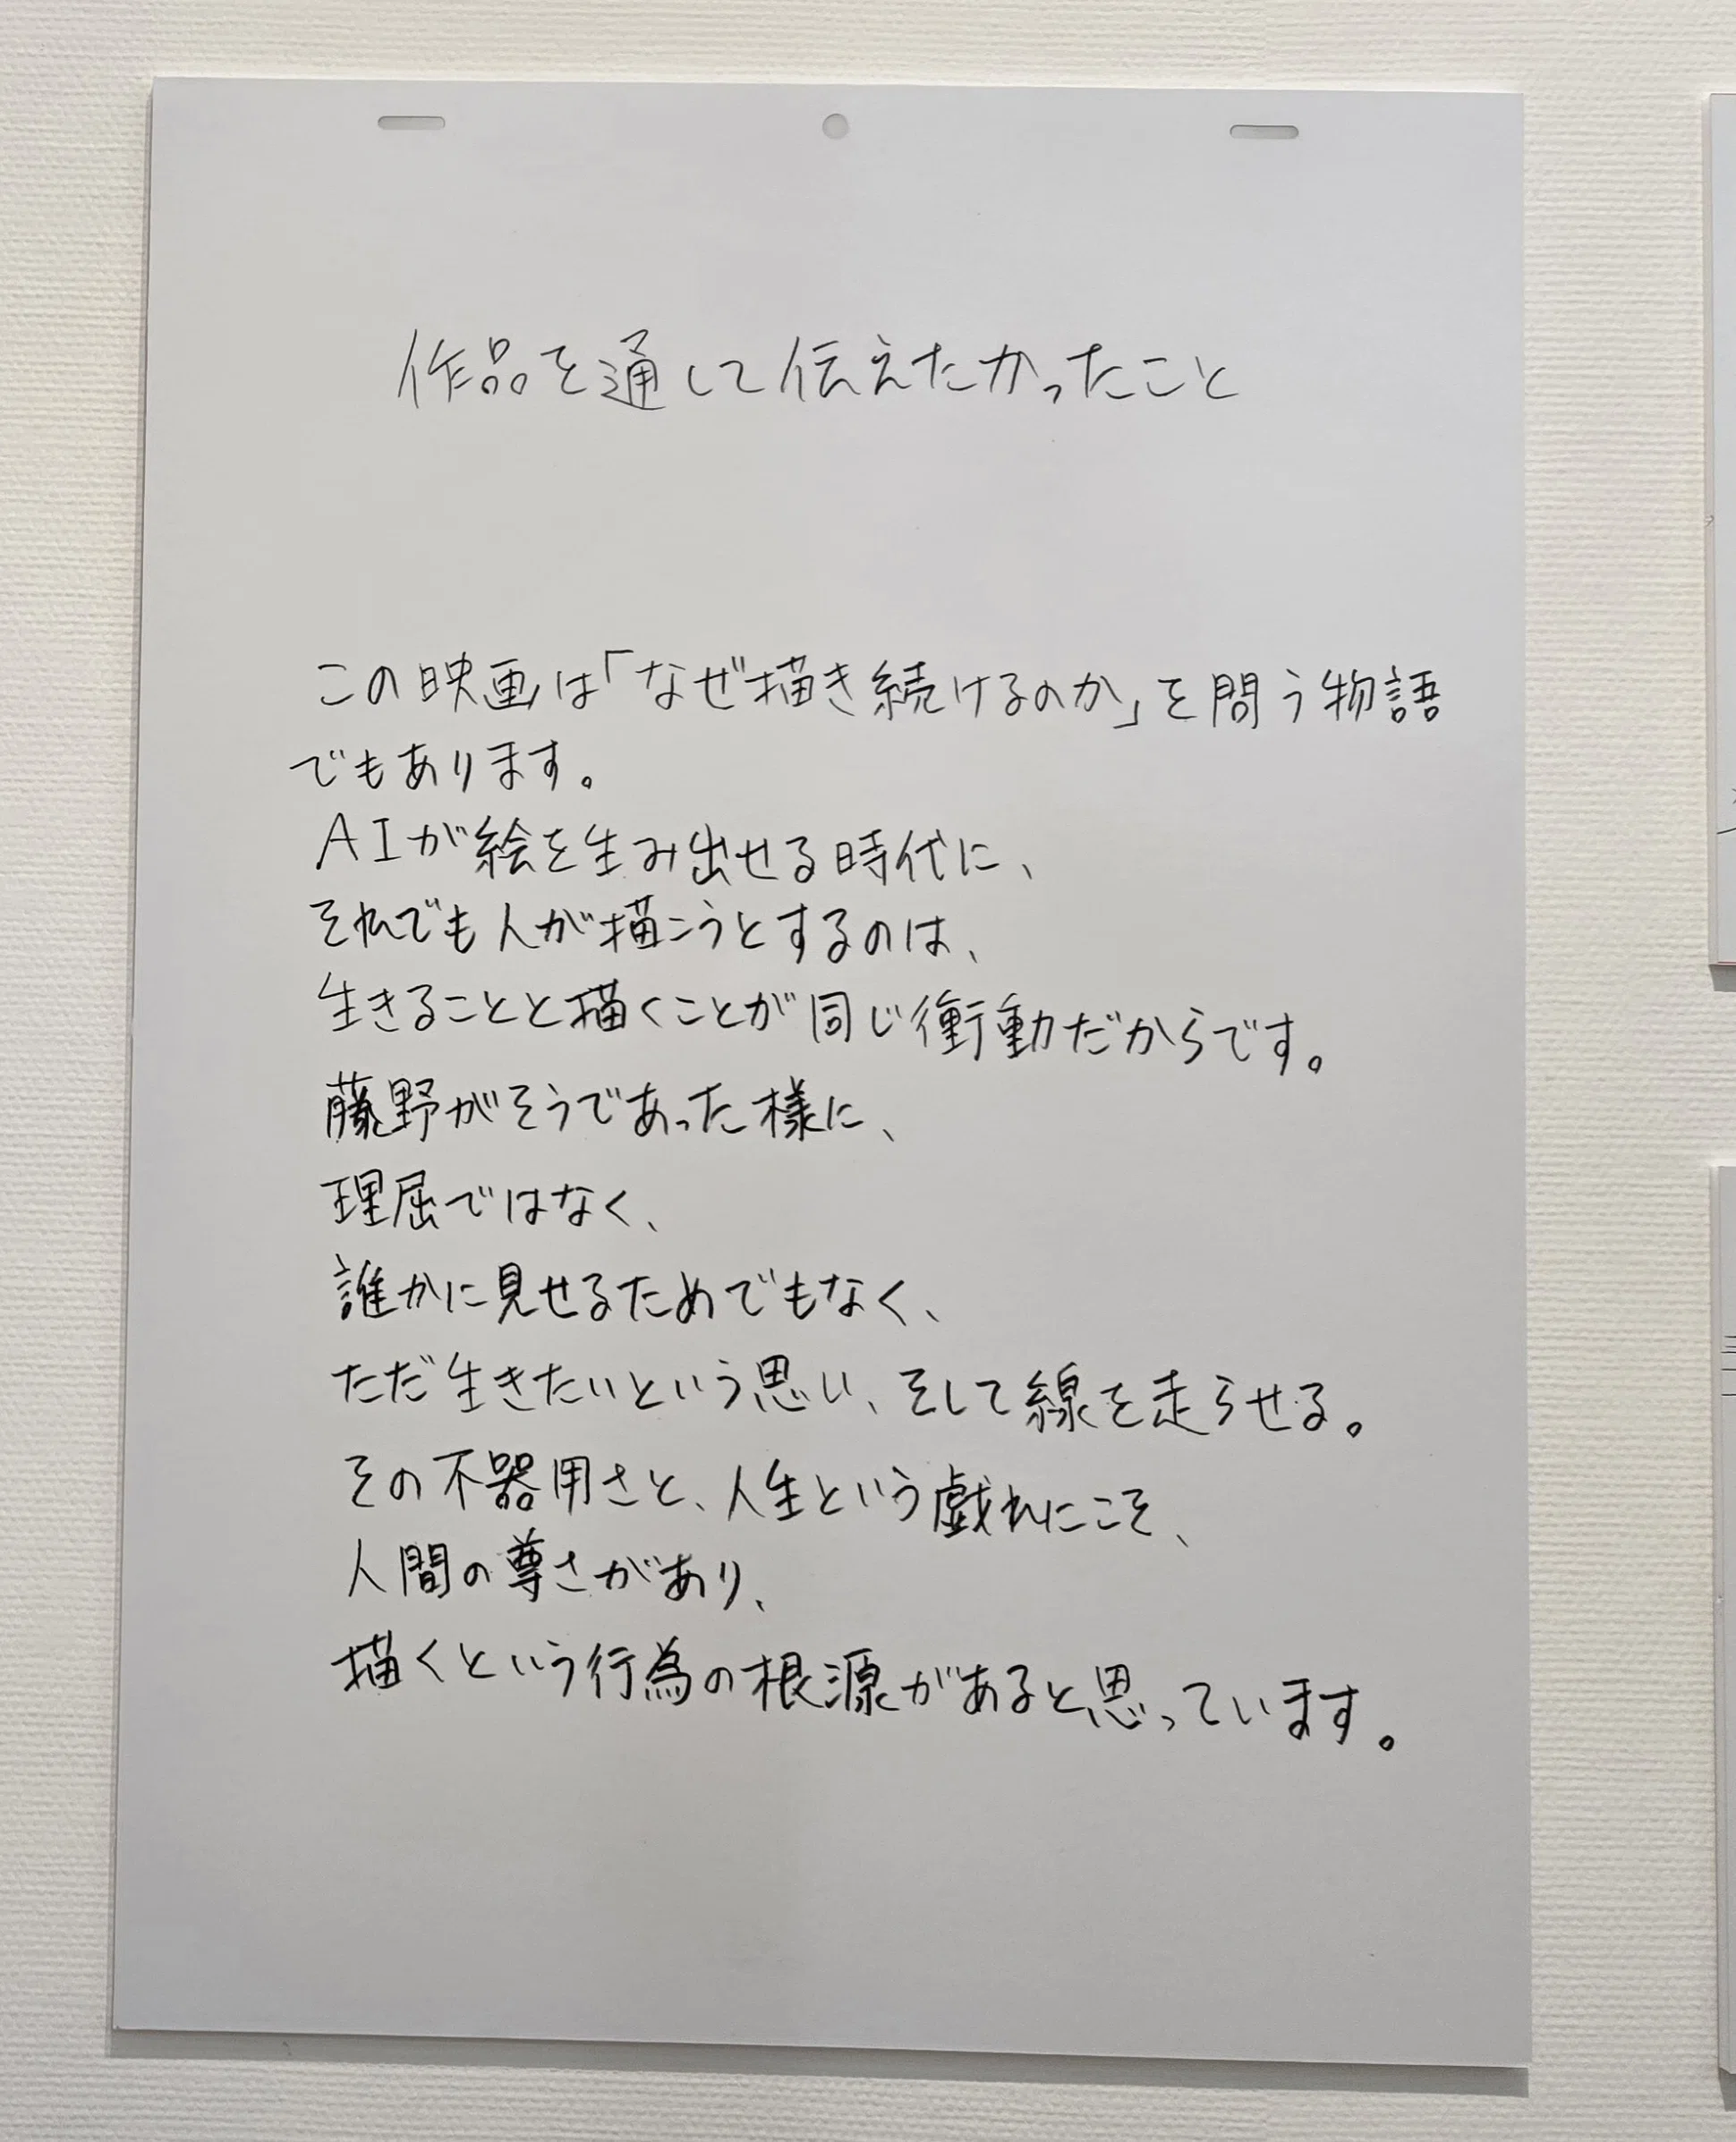 作品を通して伝えたかったこと
この映画は「なぜ描き続けるのか」を問う物語
でもあります。
AIが絵を生み出せる時代に、
それでも人が描こうとするのは、
生きることと描くことが同じ衝動だからです。
藤野がそうであった様に、
理屈ではなく、
誰かに見せるためでもなく、
ただ生きたいという思い、そして線を走らせる。
その不器用さと、人生という戯れにこそ、
人間の尊さがあり、
描くという行為の根源があると思っています。